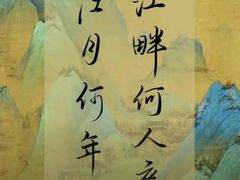 江畔何人
江月何年